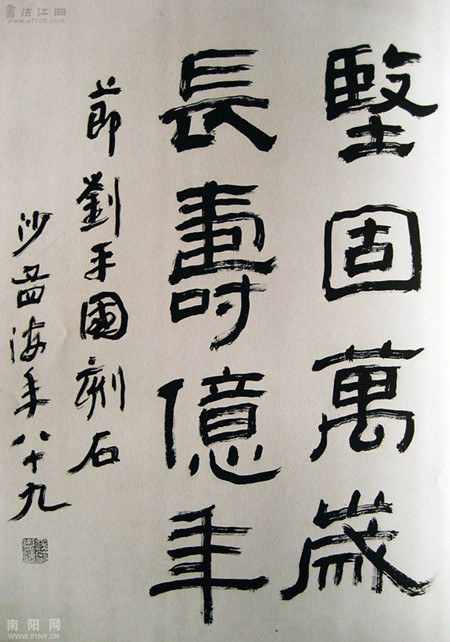 書法江湖
www.sf108.com
堅固萬歲
長壽億年
節劉平國刻石
沙孟海年八十九
南阳网
WWW.01NY.CN